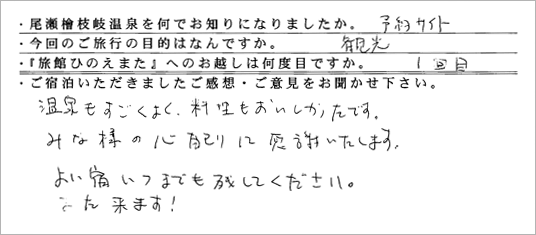 ・尾瀬檜枝岐温泉を何でお知りになりましたか。 予約サイト
・今回のご旅行の目的はなんですか。 観光
・『旅館ひのえまた』へのお越しは何度目ですか。 1回目
・ご宿泊いただきましたご感想・ご意見をお聞かせ下さい。
温泉もすごくよく、料理もおいしかったです。
みな様の心配りに感謝いたします。
よい宿いつまでも残してください。
また来ます!